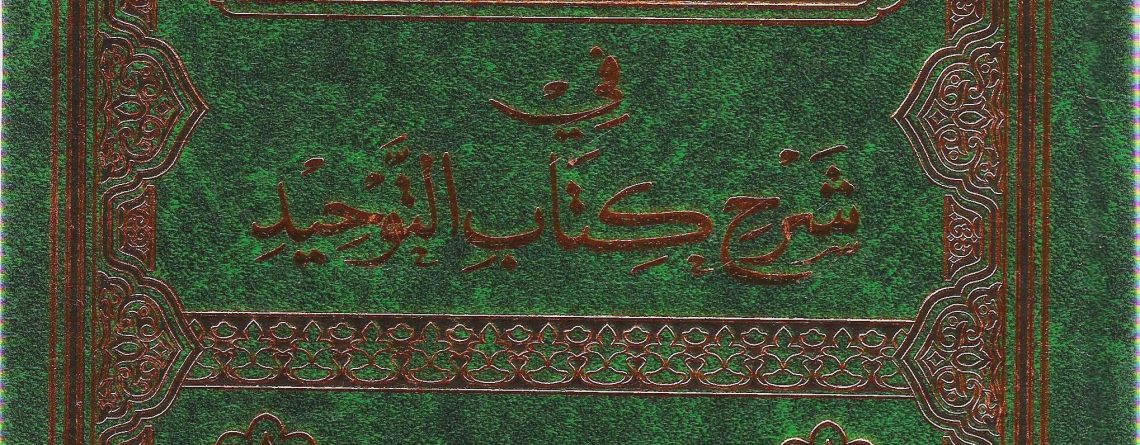 فِيْ
شَرْحِ كِتَابِ التَّوْحِيْدِ